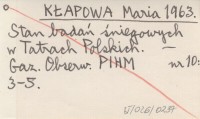 KŁAPOWA Maria 1963.
Stan badań śniegowych
w Tatrach Polskich. —
Gaz. Obserw. PIHM nr 10:
3-5.